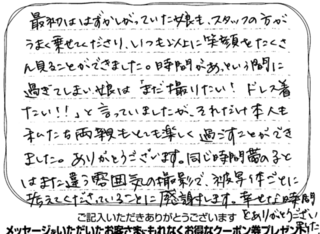 最初ははずかしがっていた娘も、スタッフの方が
うまく乗せてくださり、いつも以上に笑顔をたくさ
ん見ることができました。時間があっという間に
過ぎてしまい、娘は「まだ撮りたい！ドレス着
たい！！」と言っていましたが、それだけ本人も
私たち両親もとても楽しく過ごすことができ
ました。ありがとうございます。同じ時間帯のると
はまた違う雰囲気の撮影で、被写体ごとに
考えてくださっていることに感謝します。幸せな時間
をありがとうござい
ました
ご記入いただきありがとうございます
メッセージをいただいたお客さまへもれなくお得なクーポン券プレゼント